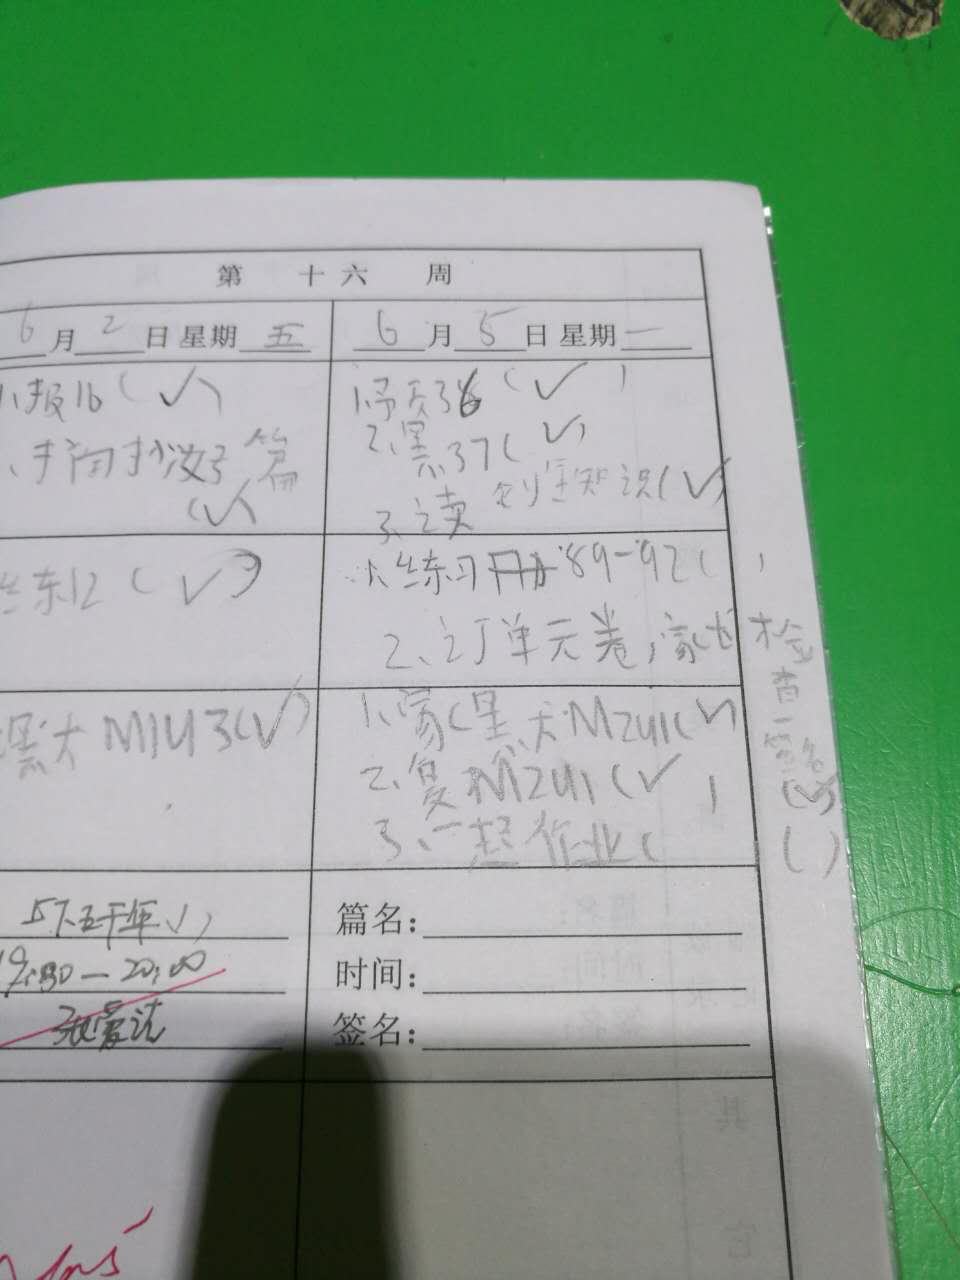 第 十六 周
6月2日星期五
1、报16(✓)
篇
(✓)
练12(✓)
黑大M1U3(✓)
上下五千年(✓)
19:30—20:00
6月5日星期一
2、黑37(✓)
3、读 知识(✓)
1、练习册89-92( )
2、订单元卷,家长检查签名
(✓)
1、(黑大M2U1(✓)
2、复M2U1(✓)
3、一起作业( )
篇名：
时间：
签名：
其
它